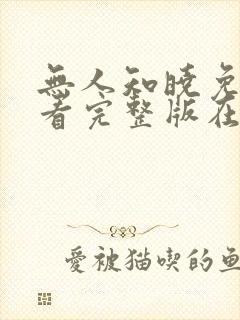 無人知曉免
看完整版在
愛被猫喫的魚